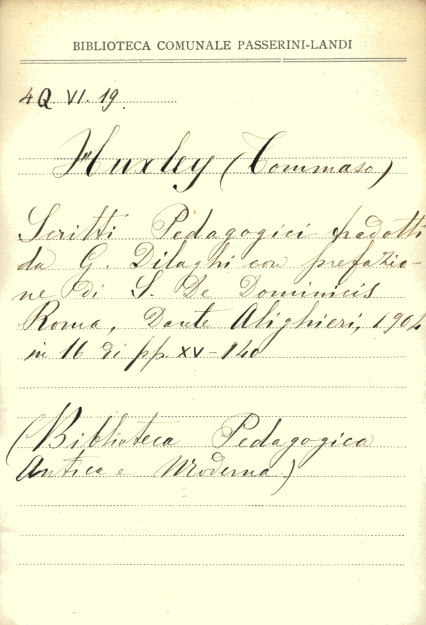 BIBLIOTECA COMUNALE PASSERINI-LANDI
4Q VI. 19.
Huxley (Tommaso)
Scritti Pedagogici tradotti
da G. Dilaghi con prefazio-
ne di S. De Dominicis
Roma, Dante Alighieri, 1904
in 16 di pp. XV-140
(Biblioteca Pedagogica
Antica e Moderna)